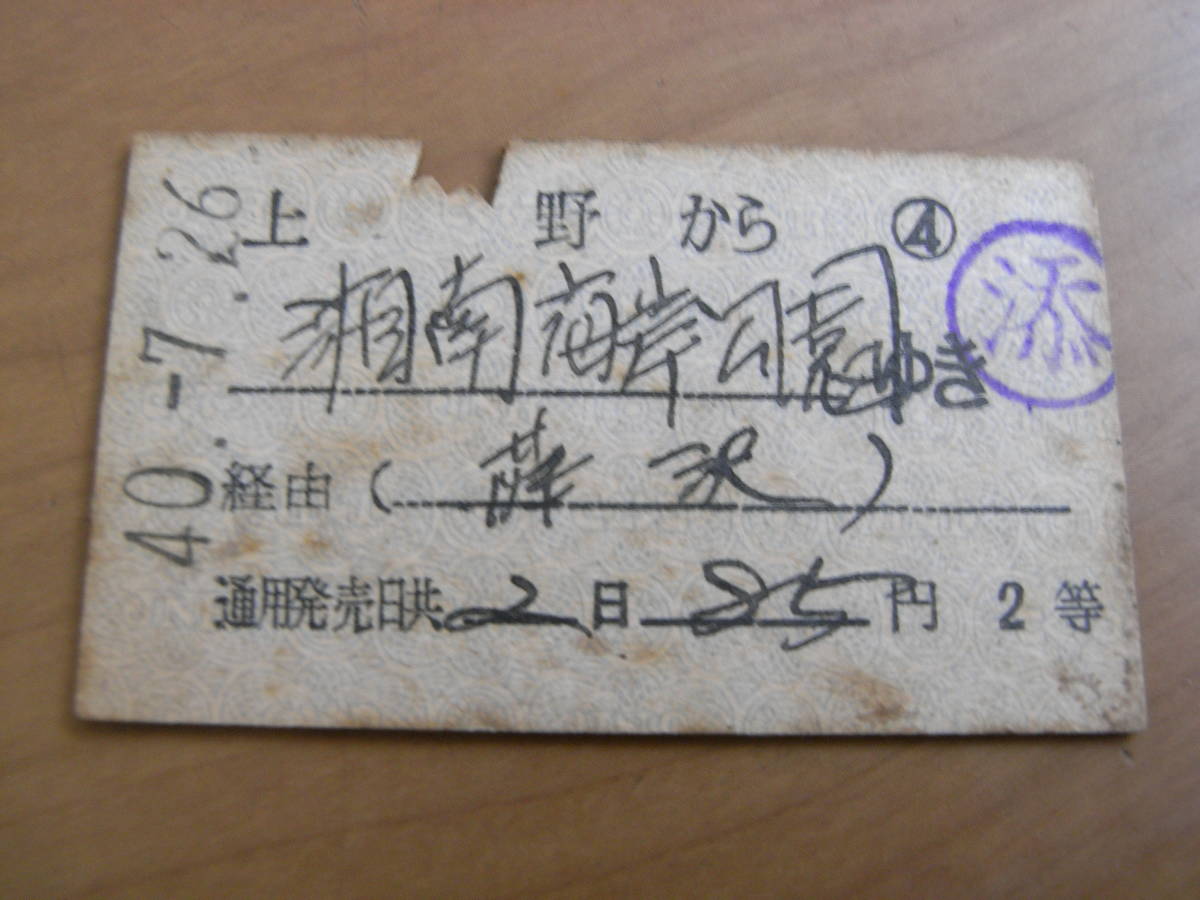 40.-7.26
上野から ④
湘南海岸公園ゆき
添
経由（藤沢）
通用発売日共2日 85円 2等